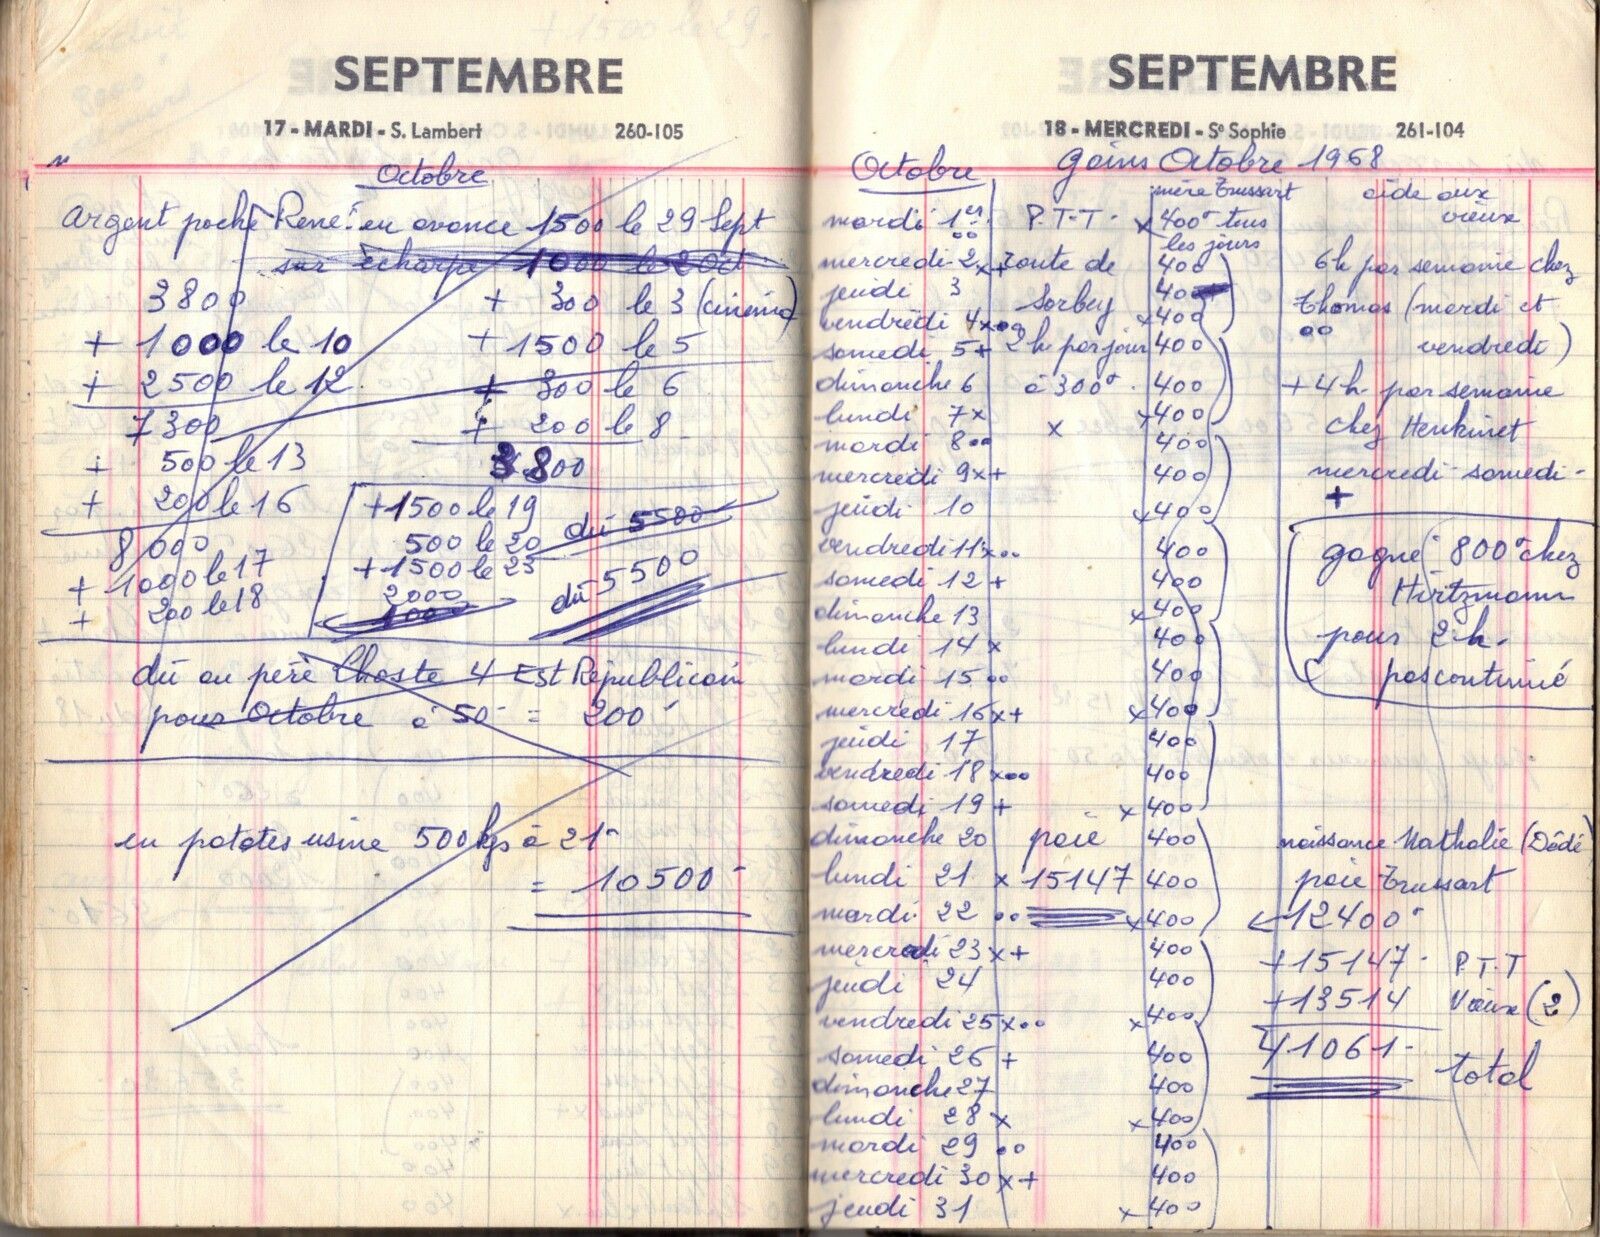 SEPTEMBRE
17 - MARDI - S. Lambert 260-105
Octobre
argent poche René en avance 1500 le 29 Sept
sur écharpe 1000 le 2 Oct
3800 + 300 le 3 (cinéma)
+ 1000 le 10 + 1500 le 5
+ 2500 le 12 + 300 le 6
7300 + 200 le 8
+ 500 le 13 3800
+ 200 le 16 +1500 le 19 dû 5500
8000 500 le 20
+ 1000 le 17 +1500 le 23 dû 5500
+ 200 le 18 2000
1000
dû au père Choste 4 Est Républicain
pour Octobre à 50 = 200
en patates usine 500 kgs à 21
= 10500
SEPTEMBRE
18 - MERCREDI - Se Sophie 261-104
Octobre gains Octobre 1968
mère Trussart aide aux
mardi 1er P.T.T. x 400 tous vieux
les jours
mercredi 2 x+ route de 400 6h par semaine chez
jeudi 3 Sorbey 400 Thomas (mardi et
vendredi 4 x x400 vendredi)
samedi 5+ 2h par jour 400
dimanche 6 à 300 400 + 4h par semaine
lundi 7x x x400 chez Henkinet
mardi 8 400
mercredi 9x+ 400 mercredi - samedi -
jeudi 10 x400 +
vendredi 11x 400 gagné 800 chez
samedi 12 + 400 Hirtzmann
dimanche 13 x400
lundi 14 x 400 pour 2h.
mardi 15 400 pas continué
mercredi 16x+ x400
jeudi 17 400
vendredi 18 x 400
samedi 19 + x400
dimanche 20 paie 400 naissance Nathalie (Dédé)
lundi 21 x 15147 400 paie Trussart
mardi 22 x400 12400
mercredi 23 x+ 400 +15147 P.T.T
jeudi 24 400 +13514 Vieux (2)
vendredi 25 x x400 41061 total
samedi 26 + 400
dimanche 27 400
lundi 28 x x400
mardi 29 400
mercredi 30 x+ 400
jeudi 31 x400